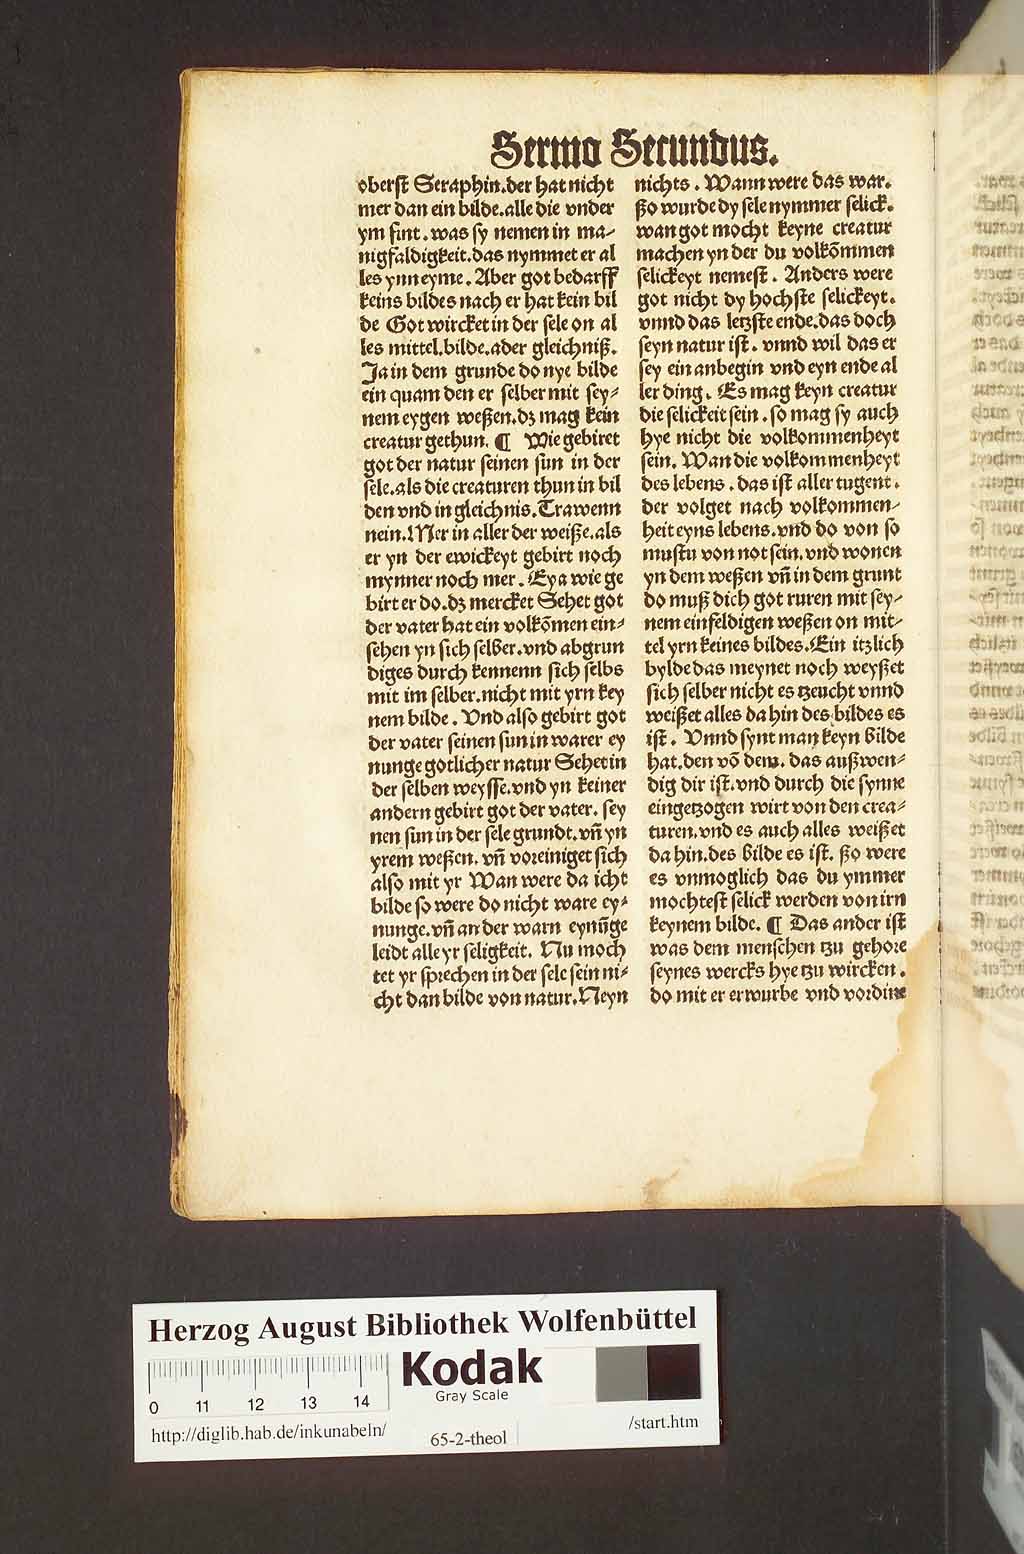 Sermo Secundus.
oberst Seraphin.der hat nicht
mer dan ein bilde.alle die vnder
ym sint.was sy nemen in ma-
nigfaldigkeit.das nymmet er al
les ynn eyme. Aber got bedarff
keins bildes nach er hat kein bil
de Got wircket in der sele on al
les mittel.bilde.ader gleichniß.
Ja in dem grunde do nye bilde
ein quam den er selber mit sey-
nem eygen weßen.dꝫ mag kein
creatur gethun. ¶ Wie gebiret
got der natur seinen sun in der
sele.als die creaturen thun in bil
den vnd in gleichnis.Trawenn
nein.Mer in aller der weiße.als
er yn der ewickeyt gebirt noch
mynner noch mer. Eya wie ge
birt er do.dꝫ mercket Sehet got
der vater hat ein volkōmen ein-
sehen yn sich selber.vnd abgrun
diges durch kennenn sich selbs
mit im selber.nicht mit yrn key
nem bilde. Vnd also gebirt got
der vater seinen sun in warer ey
nunge gotlicher natur Sehet in
der selben weysse.vnd yn keiner
andern gebirt got der vater. sey
nen sun in der sele grundt.vn̄ yn
yrem weßen. vn̄ voreiniget sich
also mit yr Wan were da icht
bilde so were do nicht ware ey-
nunge.vn̄ an der warn eynūge
leidt alle yr seligkeit. Nu moch
tet yr sprechen in der sele sein ni-
cht dan bilde von natur.Neyn
nichts. Wann were das war.
ßo wurde dy sele nymmer selick.
wan got mocht keyne creatur
machen yn der du volkōmmen
selickeyt nemest. Anders were
got nicht dy hochste selickeyt.
vnnd das letzste ende.das doch
seyn natur ist. vnnd wil das er
sey ein anbegin vnd eyn ende al
ler ding. Es mag keyn creatur
die selickeit sein.so mag sy auch
hye nicht die volkommenheyt
sein. Wan die volkommenheyt
des lebens.das ist aller tugent.
der volget nach volkommen-
heit eyns lebens.vnd do von so
mustu von not sein.vnd wonen
yn dem weßen vn̄ in dem grunt
do muß dich got ruren mit sey-
nem einfeldigen weßen on mit-
tel yrn keines bildes.Ein itzlich
bylde das meynet noch weyßet
sich selber nicht es tzeucht vnnd
weißet alles da hin des bildes es
ist. Vnnd synt man keyn bilde
hat.den vō dem. das außwen-
dig dir ist.vnd durch die synne
eingetzogen wirt von den crea-
turen.vnd es auch alles weißet
da hin.des bilde es ist. ßo were
es vnmoglich das du ymmer
mochtest selick werden von irn
keynem bilde. ¶ Das ander ist
was dem menschen tzu gehore
seynes wercks hye tzu wircken.
do mit er erwurbe vnd vordine
Herzog August Bibliothek Wolfenbüttel
Kodak
Gray Scale
0 11 12 13 14
http://diglib.hab.de/inkunabeln/
65-2-theol
/start.htm